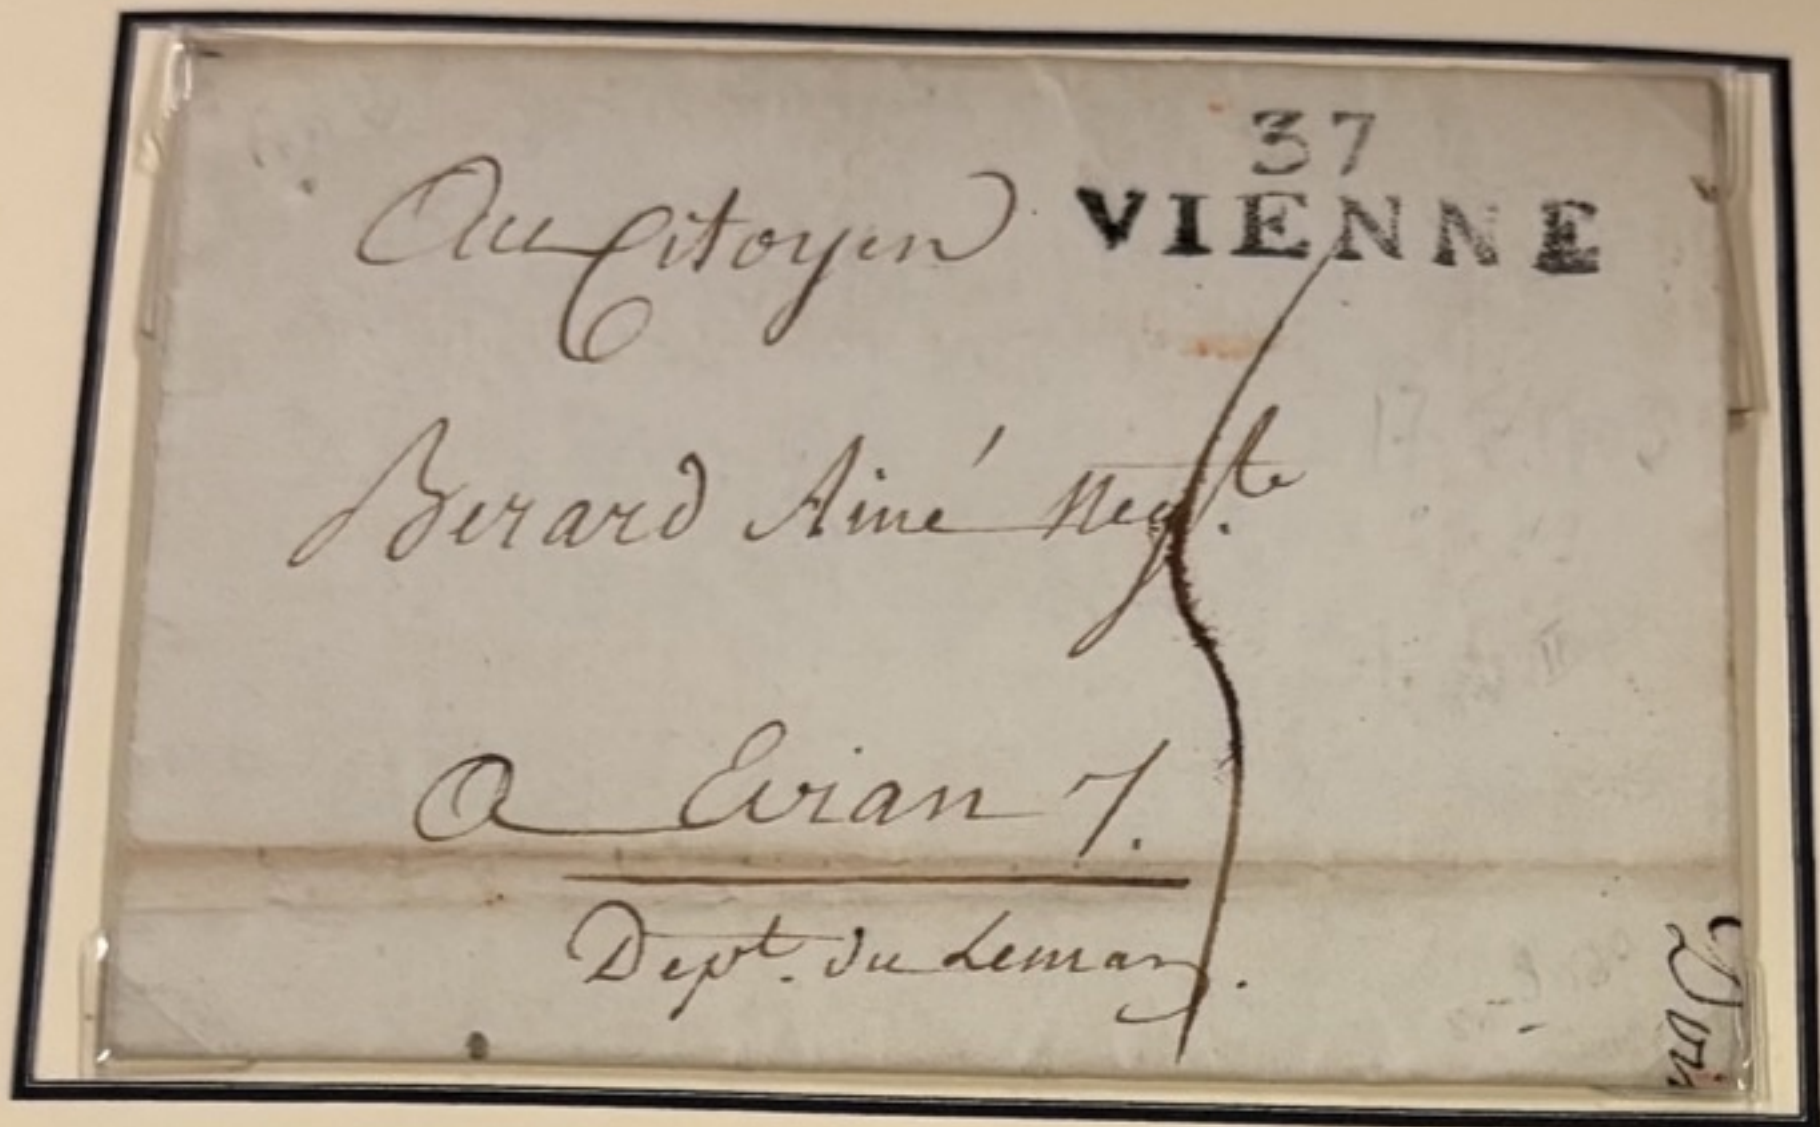 37
VIENNE
Au Citoyen
Berard Ainé Neg.te
A Evian
Dept. du Leman.